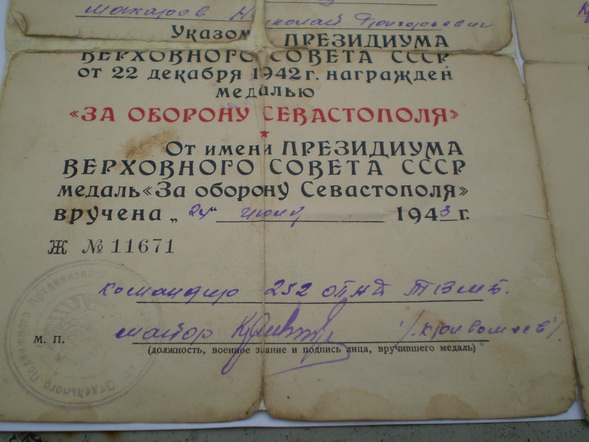 Макаров Николай Григорьевич
Указом ПРЕЗИДИУМА
ВЕРХОВНОГО СОВЕТА СССР
от 22 декабря 1942 г. награжден
медалью
«ЗА ОБОРОНУ СЕВАСТОПОЛЯ»
От имени ПРЕЗИДИУМА
ВЕРХОВНОГО СОВЕТА СССР
медаль «За оборону Севастополя»
вручена „ 24 “ 1943 г.
Ж № 11671
командир 252
М. П. майор
(должность, военное звание и подпись лица, вручившего медаль)